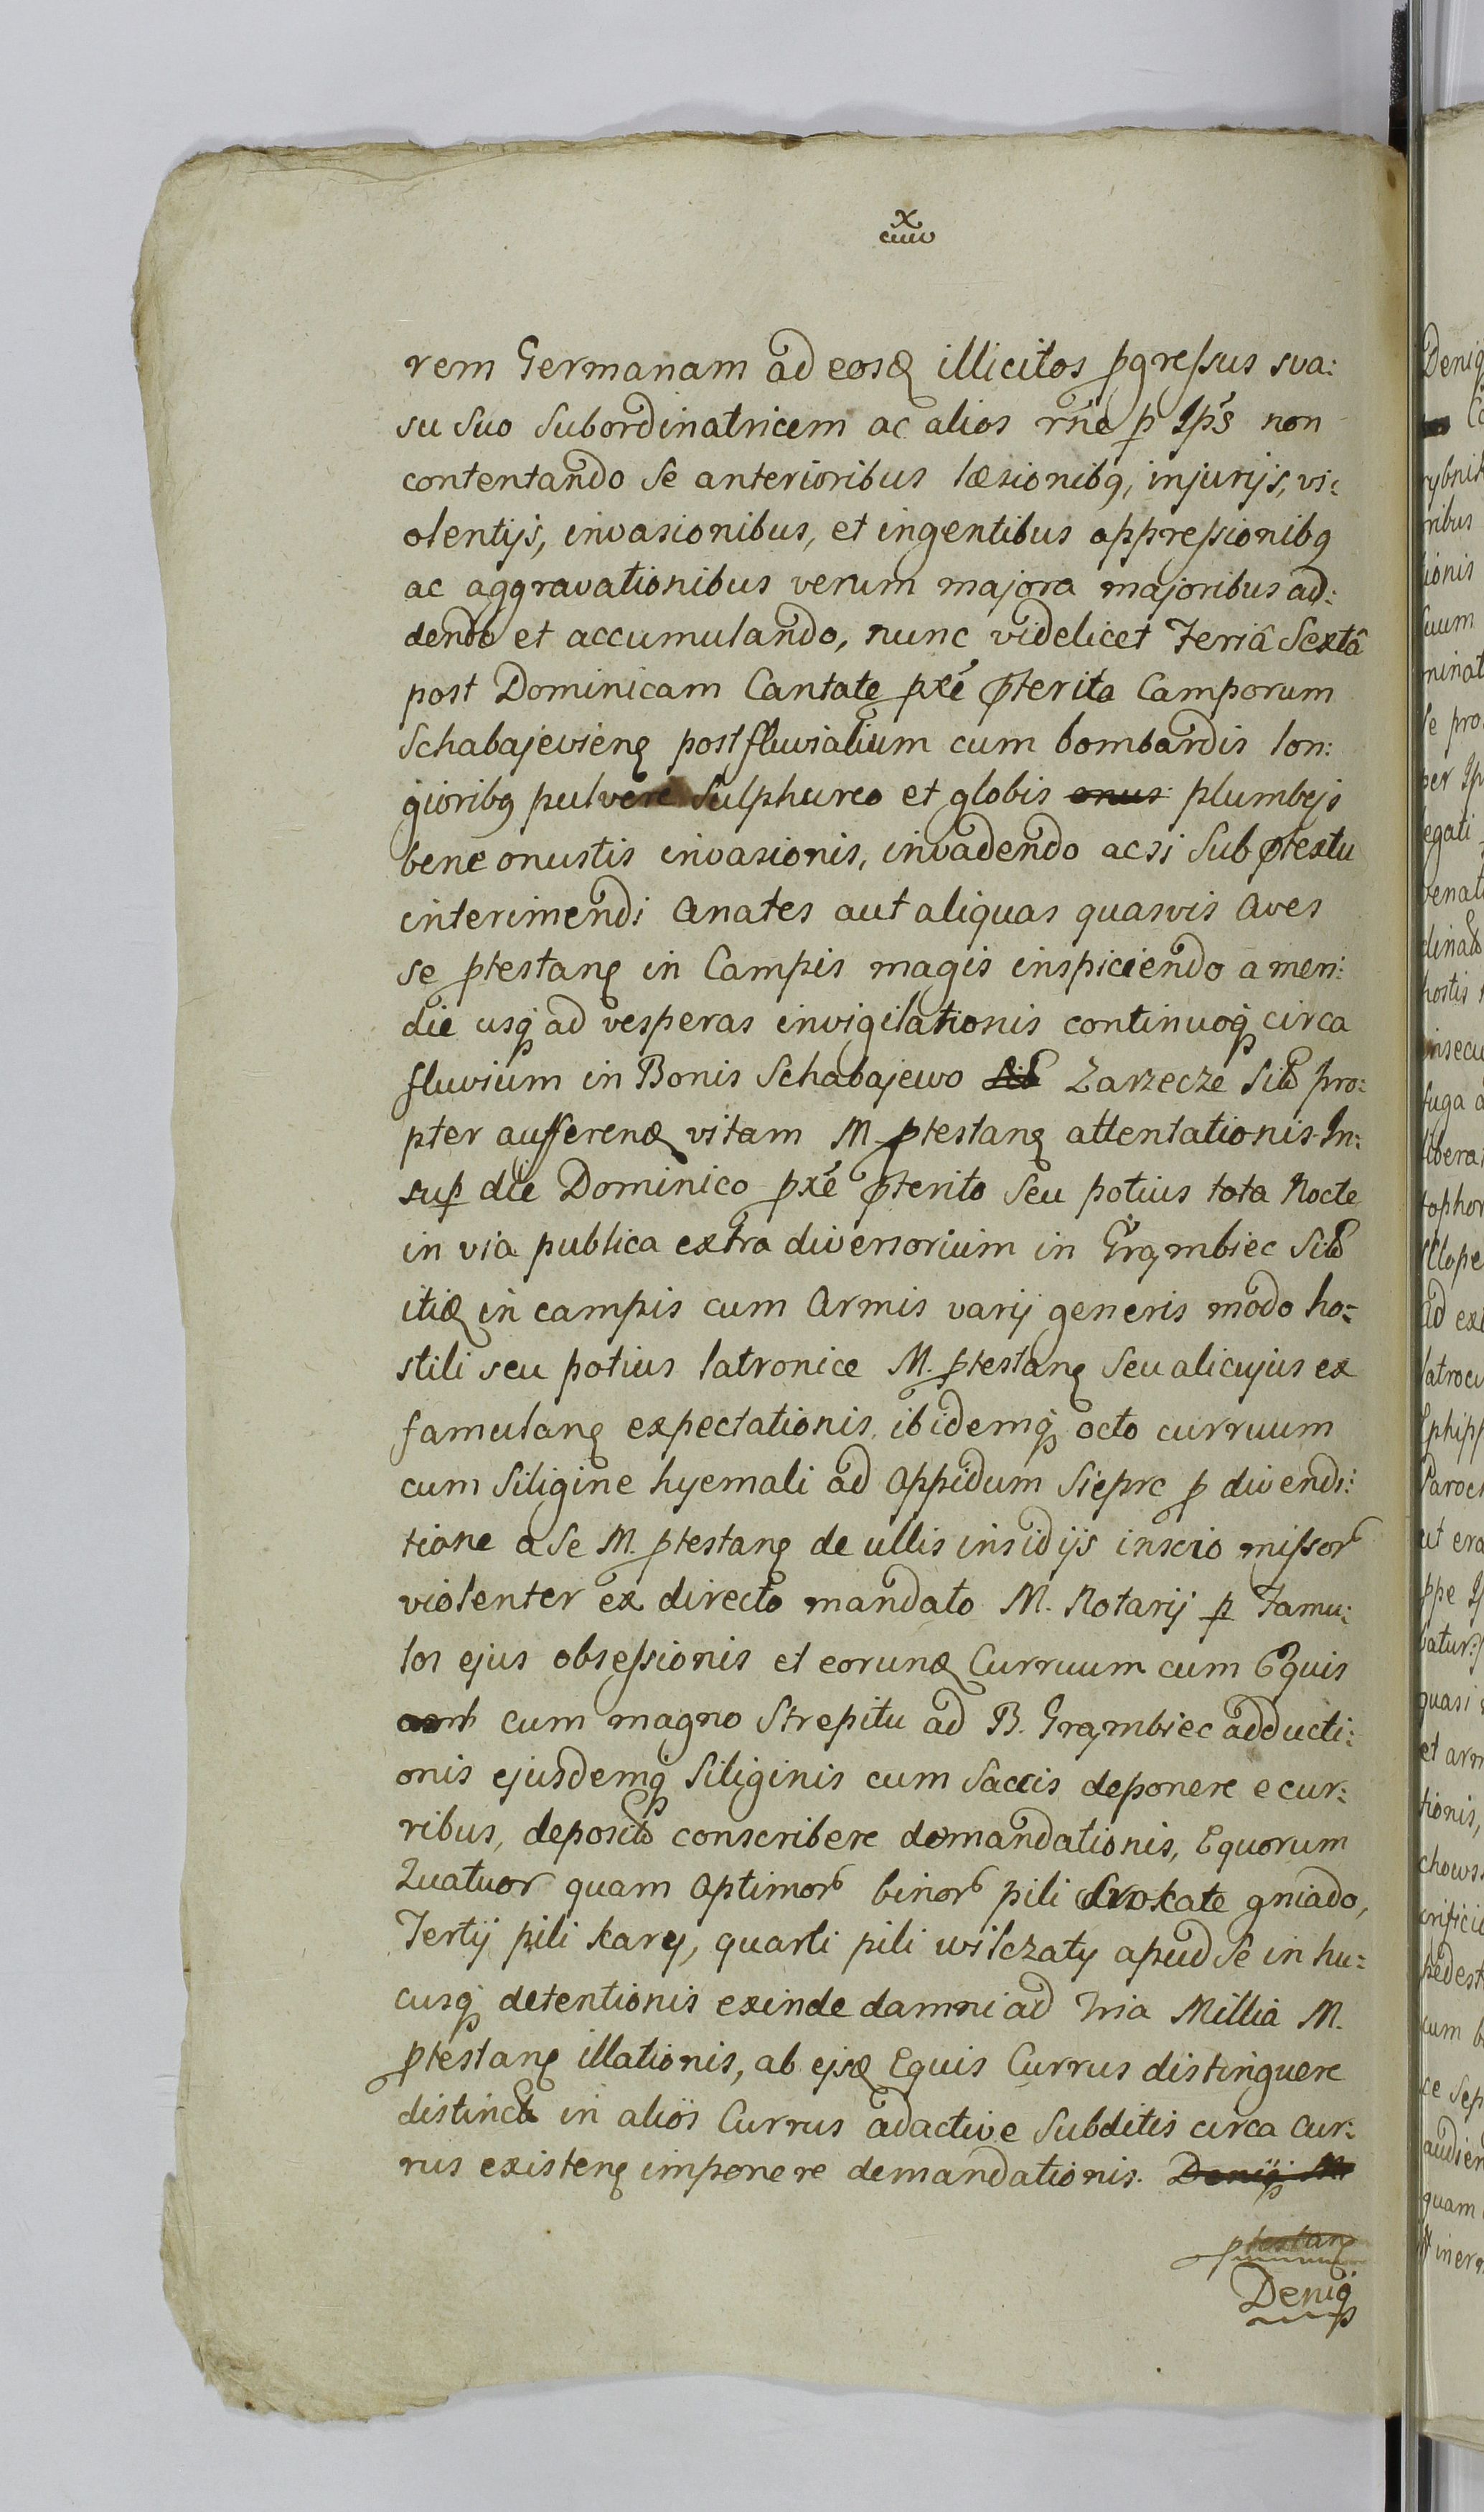 x
rem Germanam ad eosq illicitos pgressus sva:
su suo subordinatricem ac alios rñe p Ips non
contentando se anterioribus læsionibq, injurijs, vi:
olentijs, invasionibus, et ingentibus oppressionibq
ac aggravationibus verum majora majoribus ad:
dendo et accumulando, nunc videlicet Feriâ Sextâ
post Dominicam Cantate pxé pterita Camporum
Schabajevieng post fluvialium cum bombardis lon:
gioribq pulvere sulphureo et globis onus plumbejs
bene onustis invasionis, invadendo acsi sub ptextu
interimendi Anates aut aliquas quasvis Aves
se ptestang in Campis magis inspiciendo a meri:
die usq ad vesperas invigilationis continuoq circa
fluvium in Bonis Schabajewo Zarzecze sito pro:
pter aufferend vitam M ptestang attentationis. In:
sup die Dominico pxé pterito seu potius tota Nocte
in via publica extra diversorium in Grąmbiec sito
itiq in campis cum Armis varij generis modo ho=
stili seu potius latronice M. ptestang seu alicujus ex
famulang expectationis, ibidemq octo curruum
cum siligine hyemali ad Oppidum Sieprc p divendi:
tione a se M. ptestang de ullis insidijs inscio missor
violenter ex directo mandato M. Notarij p Famu:
los ejus obsessionis et eorund Curruum cum Equis
cum magno strepitu ad B. Grąmbiec adducti:
onis ejusdemq siliginis cum saccis deponere e cur:
ribus, deposito conscribere demandationis, Equorum
Quatuor quam optimor binor pili srokate gniado,
Tertij pili karej, quarti pili wilczaty apud se in hu=
cusq detentionis exinde damni ad tria Millia M.
ptestang illationis, ab ejsd Equis Currus distinguere
distincta in alios Currus adactive subditis circa cur:
rus existeng imponere demandationis. Deniq M
ptestang
Deniq